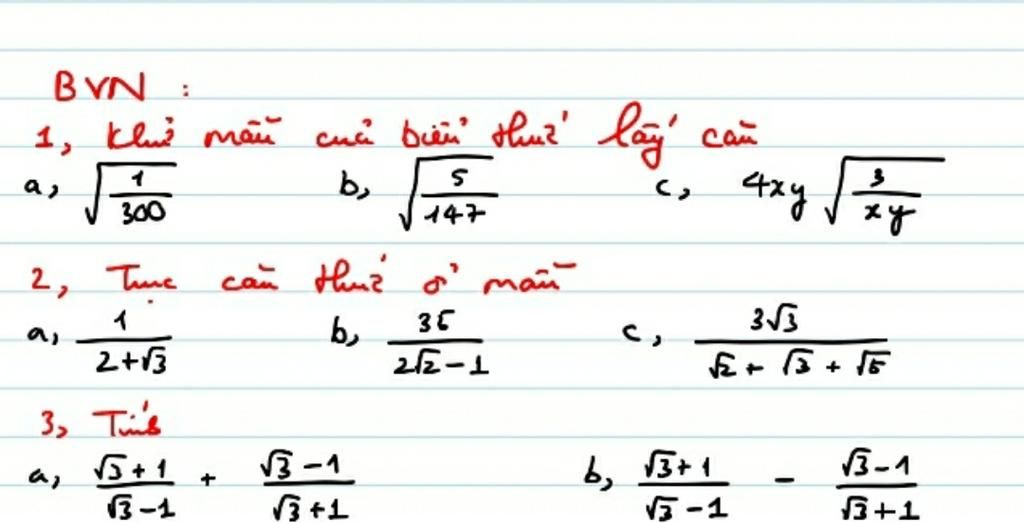 BVN :
1, Khử mẫu của biểu thức lấy căn
a, √(1/300) b, √(5/147) c, 4xy √(3/xy)
2, Trục căn thức ở mẫu
a, 1/(2+√3) b, 35/(2√2-1) c, 3√3/(√2 + √3 + √5)
3, Tính
a, (√3+1)/(√3-1) + (√3-1)/(√3+1) b, (√3+1)/(√3-1) - (√3-1)/(√3+1)